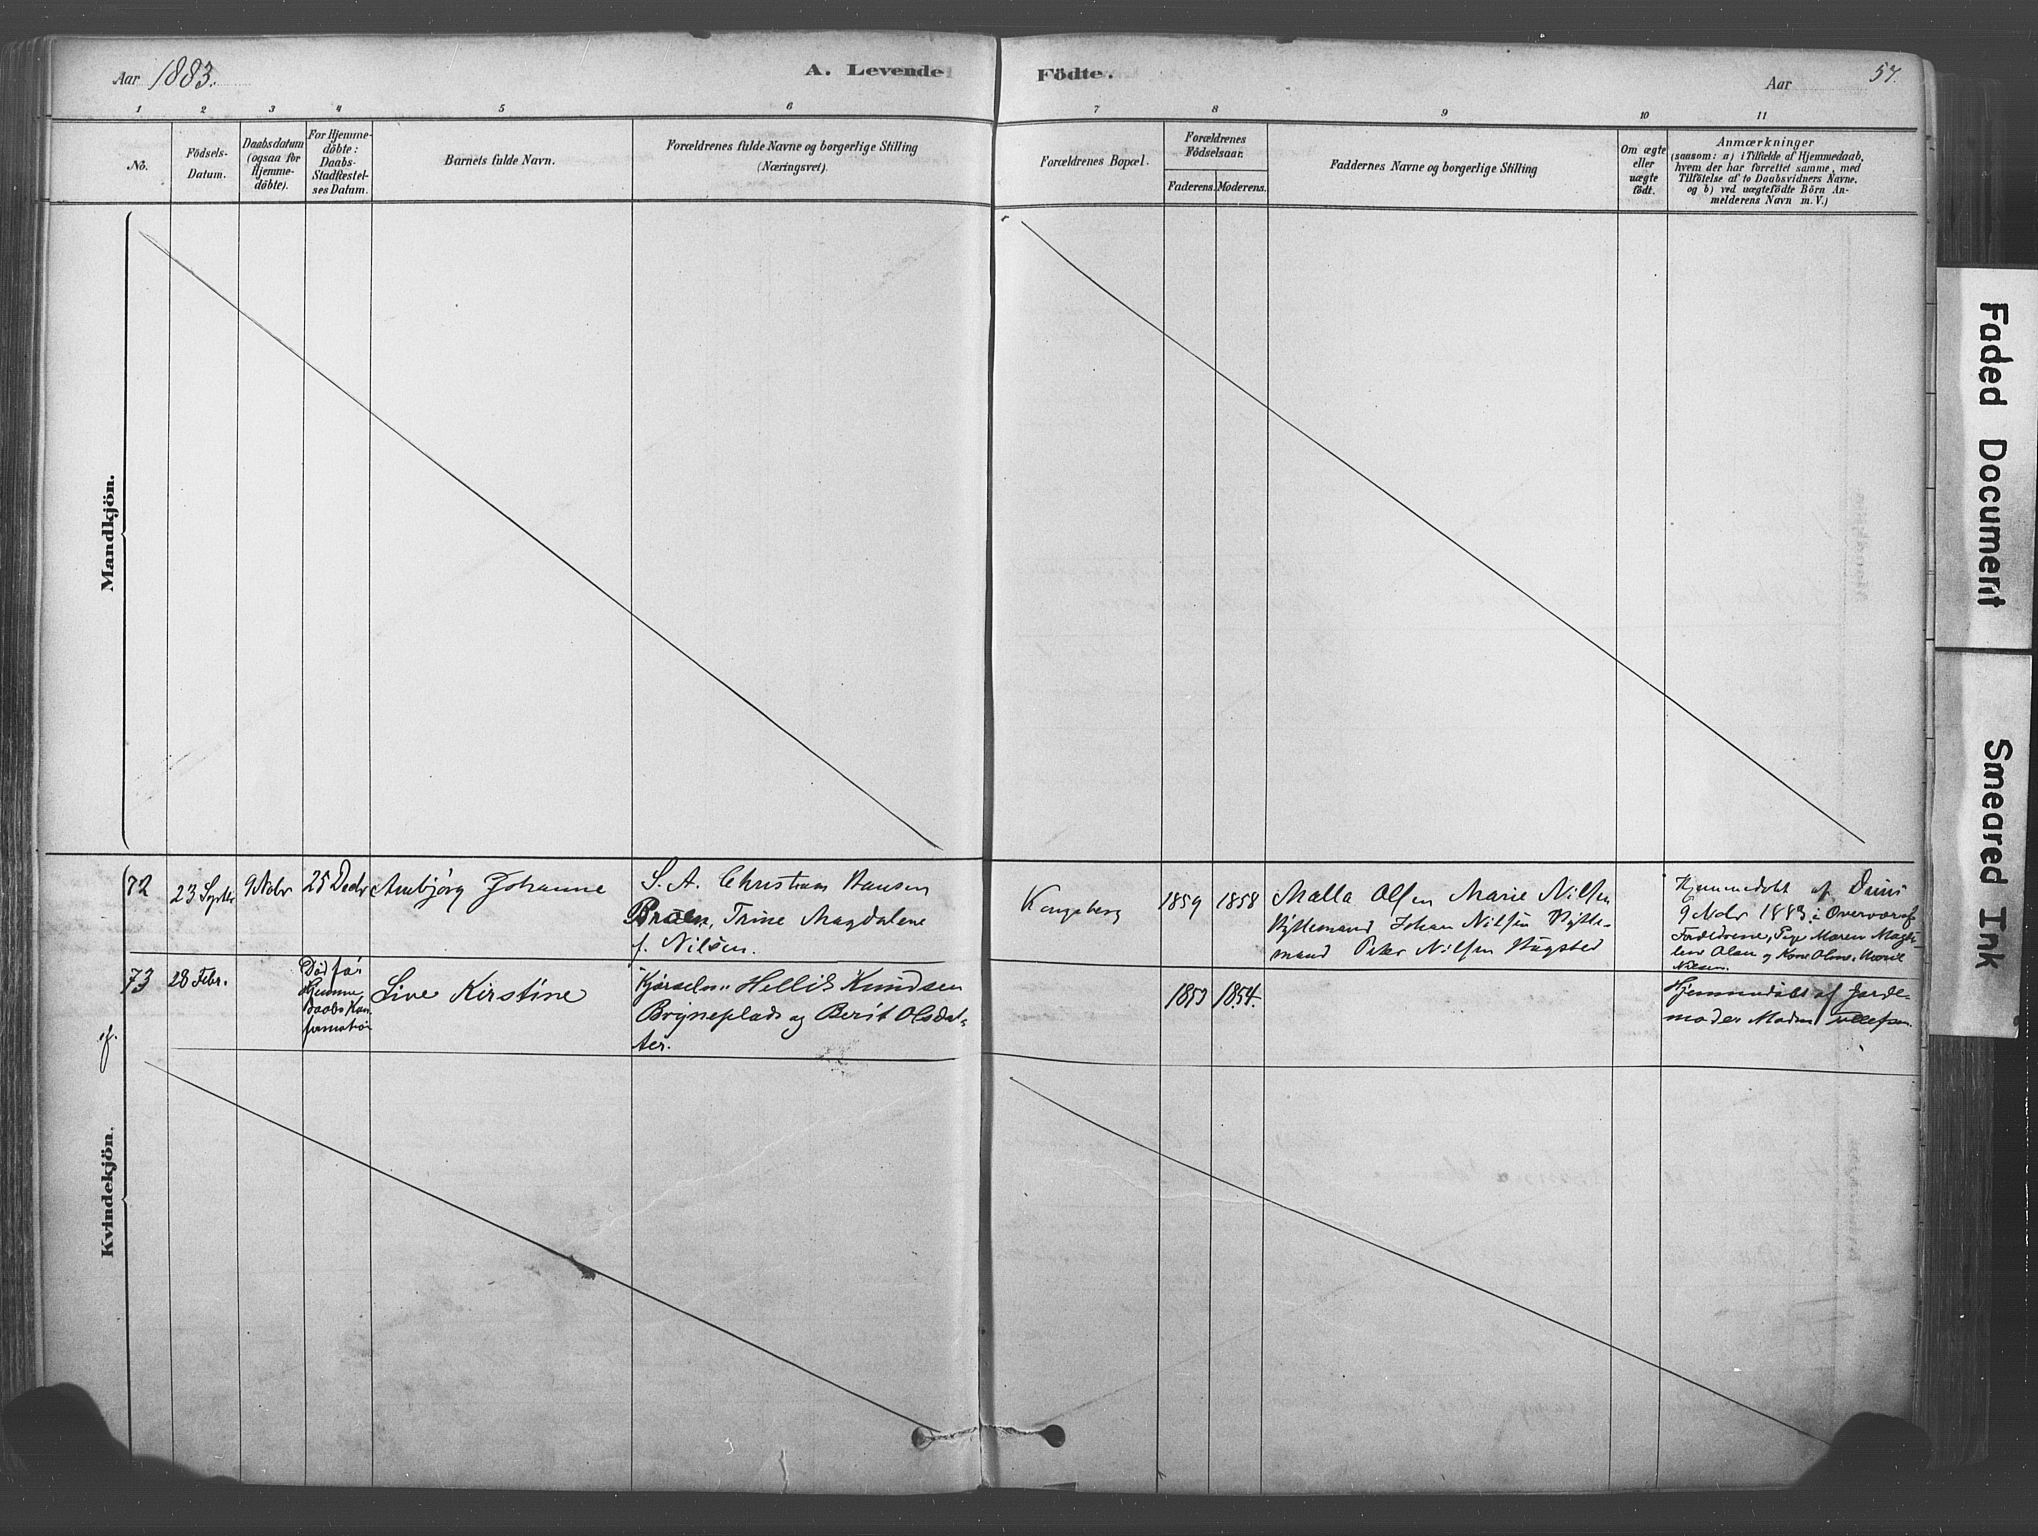 Aar 1883.
A. Levende Födte.
Aar
57.
1 2 3 4 5 6 7 8 9 10 11
No.
Födsels-
Datum.
Daabsdatum
(ogsaa for
Hjemme-
döbte).
For Hjemme-
döbte:
Daabs-
Stadfæstel-
ses Datum.
Barnets fulde Navn.
Forældrenes fulde Navne og borgerlige Stilling
(Næringsvei).
Forældrenes Bopæl.
Forældrenes
Födselsaar.
Faderens. Moderens.
Faddernes Navne og borgerlige Stilling
Om ægte
eller
uægte
födt.
Anmærkninger
(saasom: a) i Tilfælde af Hjemmedaab,
hvem der har forrettet samme, med
Tilföielse af to Daabsvidners Navne.
og b) ved uægtefödte Börn An-
melderens Navn m. V.)
Mandkjön.
72
23 Septbr
9 Nobr
25 Decbr
Ambjörg Johanne
S. A. Christian Hansen
Braaen, Trine Magdalene
f. Nilsen.
Kongsberg
1859
1858
Malla Olsen Marie Nilsen
Hyttemand Johan Nilsen Hytte-
mand Peter Nilsen
Hjemmedöbt af
9 Nobr 1883 i Overvær af
Forældrene, Pige Maren Magda-
lene Olsen og Kone
Nilsen.
73
28 Febr.
Död för
Hjemme
Daabs Kon
firmation
Live Kirstine
Kjörseln. Hellik Knudsen
Bryneplads og Berit Olsdat-
ter.
1853
1854.
Hjemmedöbt af Jorde-
moder
Kvindekjön.
Faded Document
Smeared Ink